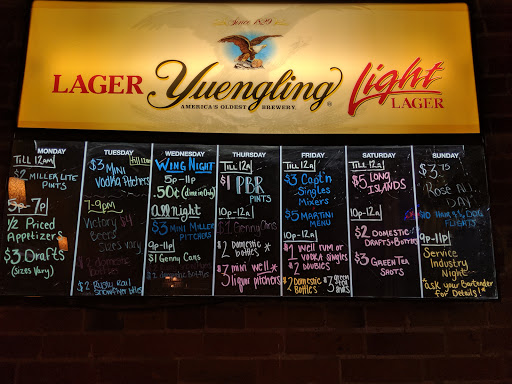 Since 1829
LAGER Yuengling Light
LAGER
AMERICA'S OLDEST BREWERY
MONDAY
Till 12am
$2 Miller Lite
Pints
5p-7p
1/2 Priced
Appetizers
$3 Drafts
(Sizes Vary)
TUESDAY
$3 Mini till 12am
Vodka Pitchers
7-9pm
Victory $4
Beers
Sizes vary
$2 Domestic
Bottles
$2 Rusty Rail
WEDNESDAY
Wing Night
5p-11p
.50¢ (Dine in Only)
All night
$3 Mini Miller
Pitchers
9p-11p
$1 Genny Cans
Domestic Bottles
THURSDAY
Till 12a
$1 PBR
Pints
10p-12a
$1 Genny Cans
$2 Domestic *
Bottles
$3 mini well *
liquor pitchers
FRIDAY
Till 12a
$3 Capt'n
Singles
Mixers
$5 Martini
Menu
10p-12a
$1 Well Rum or
Vodka Singles
$2 Doubles
$2 Domestic
Bottles
$3 green
SATURDAY
Till 12a
$5 Long
Islands
10p-12a
$2 Domestic
Drafts & Bottles
$3 Green Tea
Shots
SUNDAY
$3.75
Rosé All
Day
$10 Hair of the Dog
Flights
9p-11p
Service
Industry
Night
ask your Bartender
for Details!*